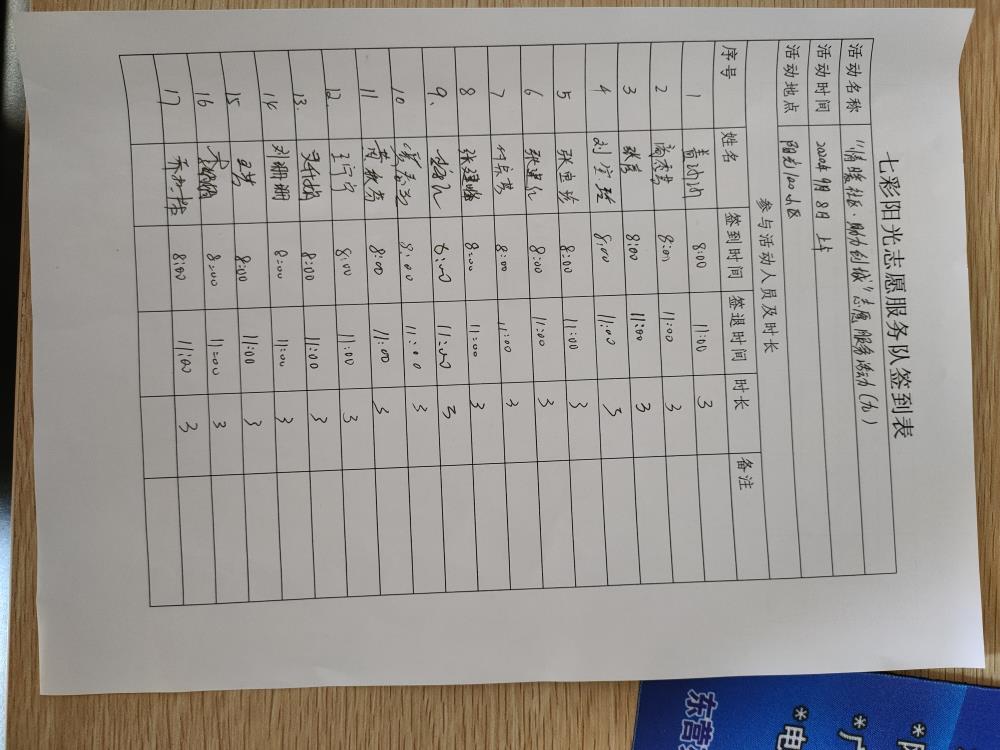 七彩阳光志愿服务队签到表
活动名称 "情暖社区·助力创城"志愿服务活动(九)
活动时间 2020年9月8日 上午
活动地点 阳光100小区
参与活动人员及时长
序号 姓名 签到时间 签退时间 时长 备注
1 8:00 11:00 3
2 8:00 11:00 3
3 张 8:00 11:00 3
4 刘宝珍 8:00 11:00 3
5 张宝珍 8:00 11:00 3
6 张建 8:00 11:00 3
7 8:00 11:00 3
8 张建峰 8:00 11:00 3
9. 8:00 11:00 3
10 8:00 11:00 3
11 黄 8:00 11:00 3
12. 王宁宁 8:00 11:00 3
13. 8:00 11:00 3
14 刘珊珊 8:00 11:00 3
15 8:00 11:00 3
16 8:00 11:00 3
17 8:00 11:00 3
东营
*电
*广
*